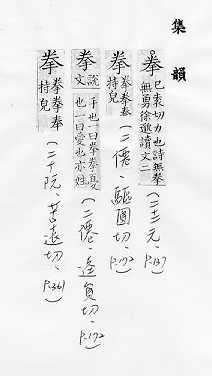 集韻
拳 己袁切力也詩無拳無勇徐邈讀文二 (二十二元、p.137)
拳 拳拳奉持皃 (二僊、驅圓切、p.172)
拳 說文手也一曰拳拳憂也一曰愛也亦姓 (二僊、逵員切、p.172)
拳 拳拳奉持皃 (二十阮、苦遠切、p.361)